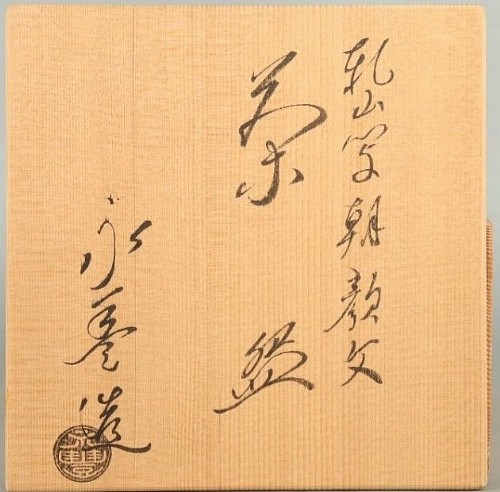 乾山写朝顔文
茶盌
永 造